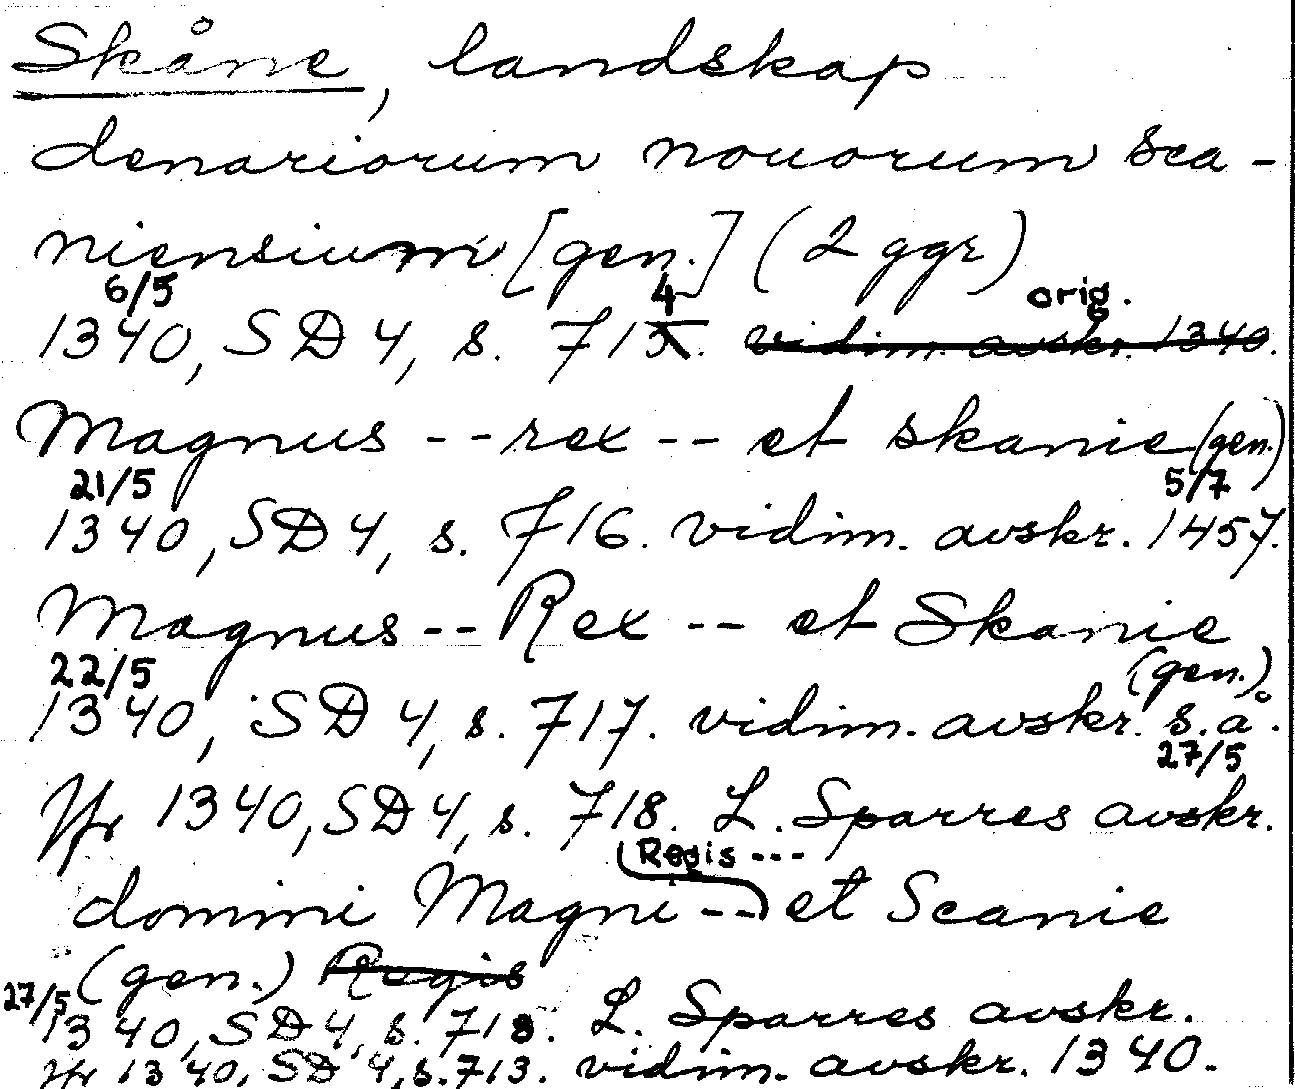 Skåne, landskap
denariorum nouorum Sca-
niensium [gen.] (2 ggr)
6/5 4 orig.
1340, SD 4, s. 713. vidim. avskr. 1340.
Magnus -- rex -- et skanie (gen.)
21/5 5/7
1340, SD 4, s. 716. vidim. avskr. 1457.
Magnus -- Rex -- et Skanie
22/5 (gen.)
1340, SD 4, s. 717. vidim. avskr. s. å.
27/5
Jfr 1340, SD 4, s. 718. L. Sparres avskr.
Regis ---
domini Magni -- et Scanie
(gen.) Regis
27/5
1340, SD 4, s. 718. L. Sparres avskr.
Jfr 1340, SD 4, s. 713. vidim. avskr. 1340.